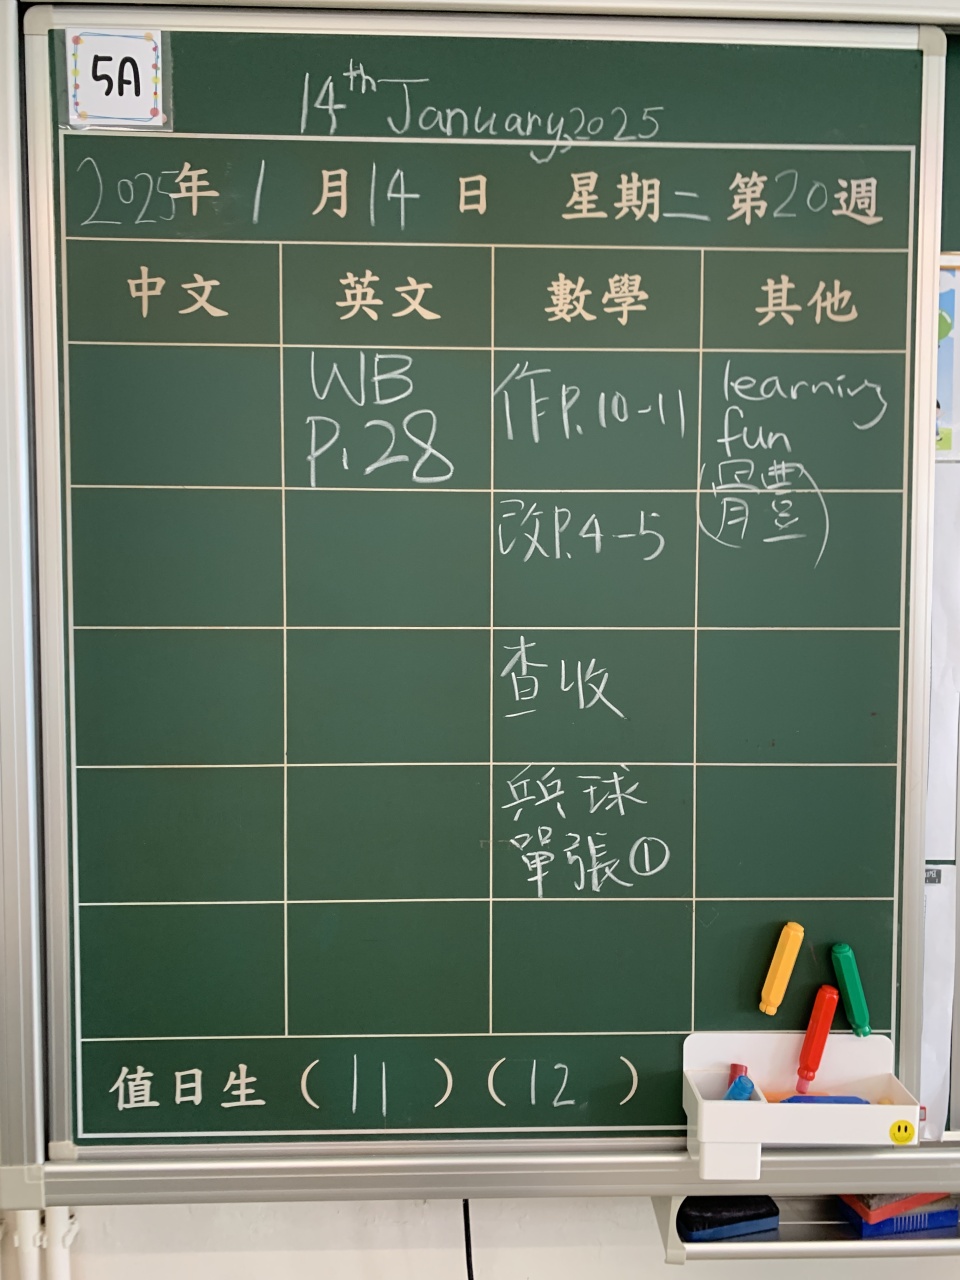 5A
14th January, 2025
2025年 1 月 14 日 星期二 第20週
中文 英文 數學 其他
WB
P.28
作P.10-11
改P.4-5
查收
乒乓球
單張①
learning
fun
(體)
值日生 (11) (12)